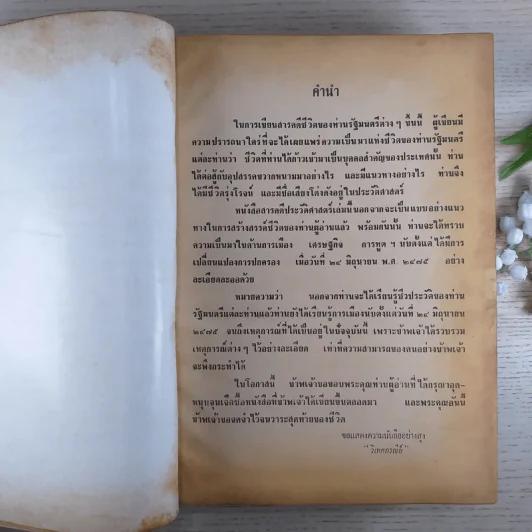 คำนำ
ในการเขียนสารคดีชีวิตของท่านรัฐมนตรีต่าง ๆ ขึ้นนี้ ผู้เขียนมี
ความปรารถนาใคร่ที่จะได้เผยแพร่ความเป็นมาแห่งชีวิตของท่านรัฐมนตรี
แต่ละท่านว่า ชีวิตที่ท่านได้ก้าวเข้ามาเป็นบุคคลสำคัญของประเทศนั้น ท่าน
ได้ต่อสู้กับอุปสรรคขวากหนามมาอย่างไร และมีแนวทางอย่างไร ท่านจึง
ได้มีชีวิตรุ่งโรจน์ และมีชื่อเสียงโด่งดังอยู่ในประวัติศาสตร์
หนังสือสารคดีประวัติศาสตร์เล่มนี้นอกจากจะเป็นแบบอย่างแนว
ทางในการสร้างสรรค์ชีวิตของท่านผู้อ่านแล้ว พร้อมกันนั้น ท่านจะได้ทราบ
ความเป็นมาในด้านการเมือง เศรษฐกิจ การทูต ฯ นับตั้งแต่ได้มีการ
เปลี่ยนแปลงการปกครอง เมื่อวันที่ ๒๔ มิถุนายน พ.ศ. ๒๔๗๕ อย่าง
ละเอียดละออด้วย
หมายความว่า นอกจากท่านจะได้เรียนรู้ชีวประวัติของท่าน
รัฐมนตรีแต่ละท่านแล้วท่านยังได้เรียนรู้การเมืองนับตั้งแต่วันที่ ๒๔ มิถุนายน
๒๔๗๕ จนถึงเหตุการณ์ที่ได้เป็นอยู่ในปัจจุบันนี้ เพราะข้าพเจ้าได้รวบรวม
เหตุการณ์ต่าง ๆ ไว้อย่างละเอียด เท่าที่ความสามารถของคนอย่างข้าพเจ้า
จะพึงกระทำได้
ในโอกาสนี้ ข้าพเจ้าขอขอบพระคุณท่านผู้อ่านที่ได้กรุณาอุด-
หนุนจุนเจือซื้อหนังสือที่ข้าพเจ้าได้เขียนขึ้นตลอดมา และพระคุณอันนี้
ข้าพเจ้าขอจดจำไว้จนวาระสุดท้ายของชีวิต
ขอแสดงความนับถืออย่างสูง